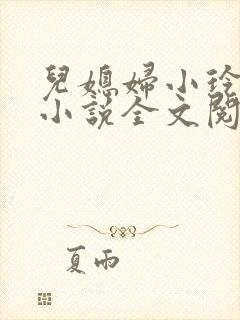 兒媳婦小玲
小說全文閱
夏雨